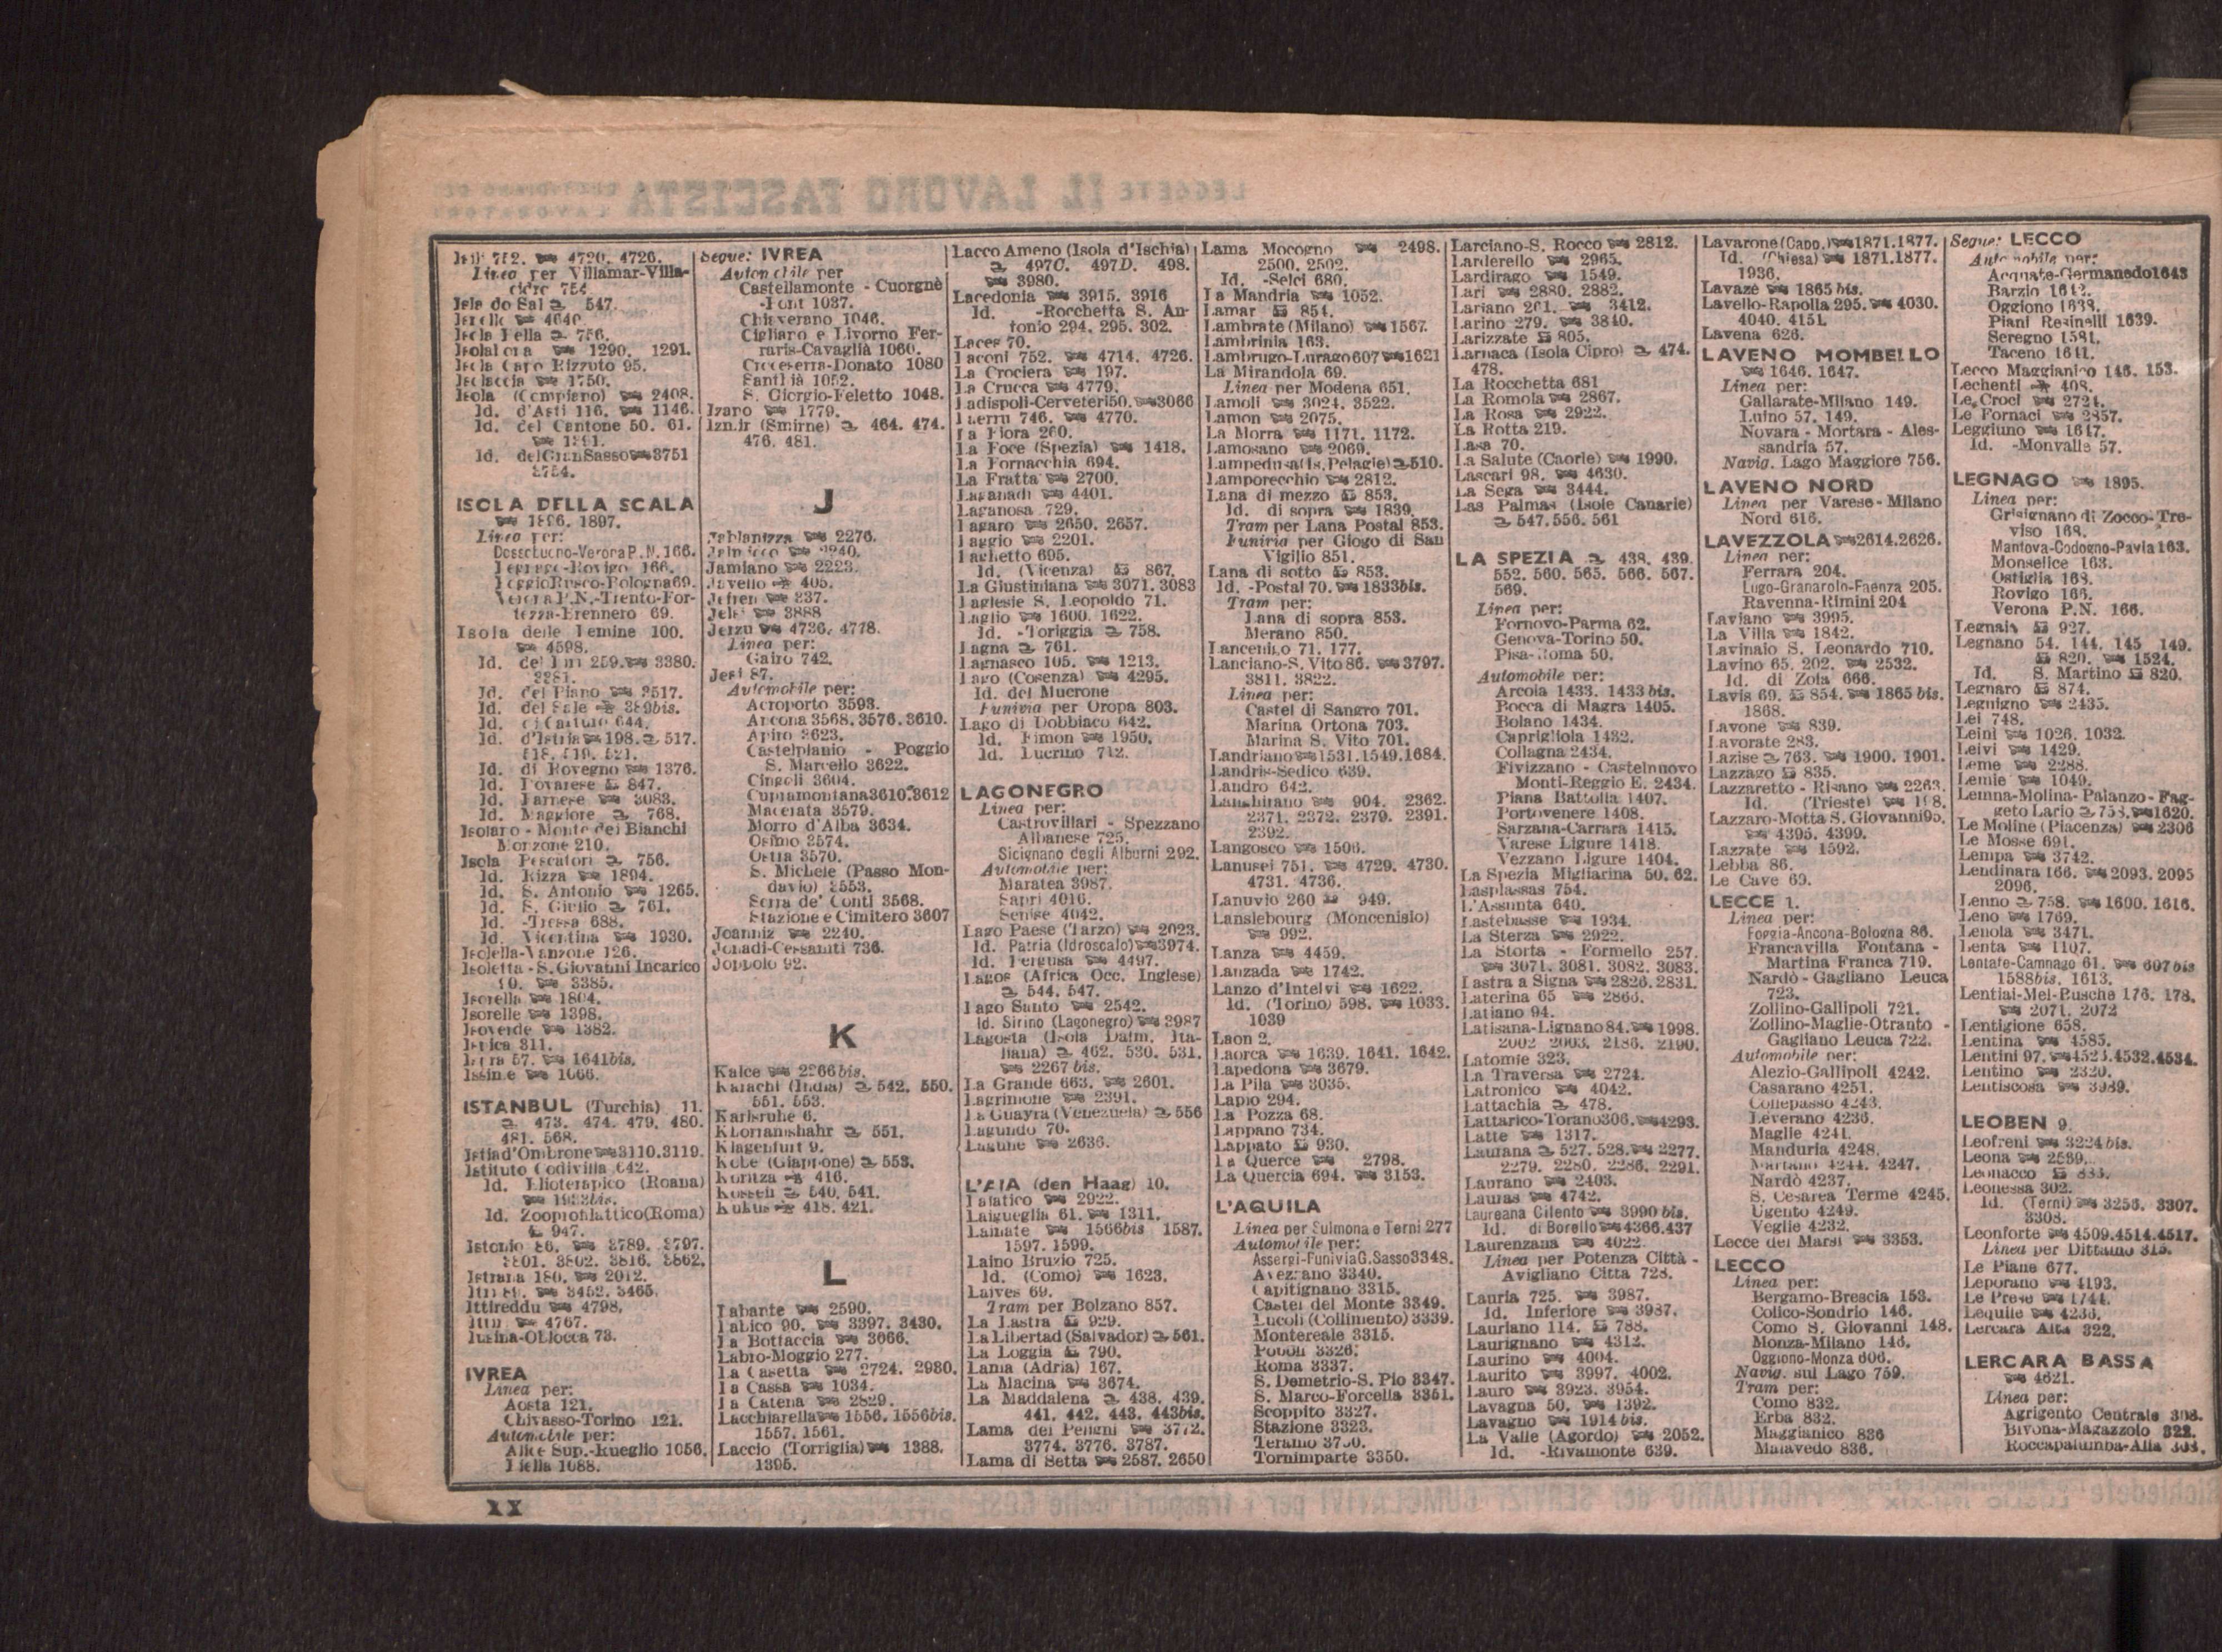 Isili 752. 4720. 4726.
Linea per Villamar-Villa-
cidro 754
547.
Isola Bella 756.
1290. 1291.
Isola Capo Rizzuto 95.
1750.
Isola (Compiano) 2408.
Id. d'Asti 116. 1146.
Id. del Cantone 50. 61.
Id. del Gran Sasso 3751
3754.
ISOLA DELLA SCALA
1896. 1897.
Linea per:
Dossobuono-Verona P.N. 166.
Legnago-Rovigo 166.
Poggio Rusco-Bologna 69.
Verona P.N.-Trento-For-
tezza-Brennero 69.
Isola delle Femine 100.
4598.
Id. del Liri 259. 3380.
3381.
Id. del Piano 3517.
Id. del Sale 389bis.
Id. di Carturo 644.
Id. d'Istria 198. 517.
518. 519. 521.
Id. di Rovegno 1376.
Id. Dovarese 847.
Id. Farnese 3083.
Id. Maggiore 768.
Isolaro - Monte dei Bianchi
Monzone 210.
Isola Pescatori 756.
Id. Rizza 1894.
Id. S. Antonio 1265.
Id. S. Giulio 761.
Id. -Tressa 688.
Id. Vicentina 1930.
Isolella-Vanzone 126.
Isoletta - S. Giovanni Incarico
3385.
Isorella 1804.
Isorelle 1398.
Isoverde 1382.
Ispica 311.
Ispra 57. 1641bis.
Issime 1066.
ISTANBUL (Turchia) 11.
473. 474. 479. 480.
481. 568.
Istia d'Ombrone 3110. 3119.
Istituto Codivilla 642.
Id. Elioterapico (Roana)
Id. Zooprofilattico (Roma)
947.
Istonio 86. 3789. 3797.
3801. 3802. 3816. 3862.
Istrana 180. 2012.
Itri 89. 3452. 3465.
Ittireddu 4798.
Ittiri 4767.
IVREA
Linea per:
Aosta 121.
Chivasso-Torino 121.
Automobile per:
Alice Sup.-Rueglio 1056.
Biella 1088.
Segue: IVREA
Automobile per
Castellamonte - Cuorgnè
-Pont 1037.
Chiaverano 1046.
Cigliano e Livorno Fer-
raris-Cavaglià 1060.
Croceserra-Donato 1080
Santhià 1052.
S. Giorgio-Feletto 1048.
Izano 1779.
Izmir (Smirne) 464. 474.
476. 481.
J
Jablanizza 2276.
Jalmicco 2240.
Jamiano 2223.
Javello 405.
Jefren 337.
Jelsi 3888
Jerzu 4736. 4778.
Linea per:
Gairo 742.
Jesi 87.
Automobile per:
Aeroporto 3593.
Ancona 3568. 3576. 3610.
Apiro 3623.
Castelplanio - Poggio
S. Marcello 3622.
Cingoli 3604.
Cupramontana 3610. 3612
Macerata 3579.
Morro d'Alba 3634.
Osimo 3574.
Ostra 3570.
S. Michele (Passo Mon-
davio) 3553.
Serra de' Conti 3568.
Stazione e Cimitero 3607
Joanniz 2240.
Jonadi-Cessaniti 736.
Joppolo 92.
K
Kalce 2266bis.
Karachi (India) 542. 550.
551. 553.
Karlsruhe 6.
Khorramshahr 551.
Klagenfurt 9.
Kobe (Giappone) 553.
Koritza 416.
Kosseir 540. 541.
Kukus 418. 421.
L
Labante 2590.
Labico 90. 3397. 3430.
La Bottaccia 3066.
Labro-Moggio 277.
La Casetta 2724. 2980.
La Cassa 1034.
La Catena 2829.
Lacchiarella 1556. 1556bis.
1557. 1561.
Laccio (Torriglia) 1388.
1395.
Lacco Ameno (Isola d'Ischia)
497C. 497D. 498.
3980.
Lacedonia 3915. 3916
Id. -Rocchetta S. An-
tonio 294. 295. 302.
Laces 70.
Laconi 752. 4714. 4726.
La Crociera 197.
La Crucca 4779.
Ladispoli-Cerveteri 50. 3066
Laerru 746. 4770.
La Fiora 260.
La Foce (Spezia) 1418.
La Fornacchia 694.
La Fratta 2700.
Laganadi 4401.
Laganosa 729.
Lagaro 2650. 2657.
Laggio 2201.
Laghetto 695.
Id. (Vicenza) 867.
La Giustiniana 3071. 3083
Laglesie S. Leopoldo 71.
Laglio 1600. 1622.
Id. -Toriggia 758.
Lagna 761.
Lagnasco 105. 1213.
Lago (Cosenza) 4295.
Id. del Mucrone
Funivia per Oropa 803.
Lago di Dobbiaco 642.
Id. Fimon 1950.
Id. Lucrino 712.
LAGONEGRO
Linea per:
Castrovillari - Spezzano
Albanese 725.
Sicignano degli Alburni 292.
Automobile per:
Maratea 3987.
Sapri 4016.
Senise 4042.
Lago Paese (Tarzo) 2023.
Id. Patria (Idroscalo) 3974.
Id. Pergusa 4497.
Lagos (Africa Occ. Inglese)
544. 547.
Lago Santo 2542.
Id. Sirino (Lagonegro) 3987
Lagosta (Isola Dalm. Ita-
liana) 462. 530. 531.
2267bis.
La Grande 663. 2601.
Lagrimone 2391.
La Guayra (Venezuela) 556
Lagundo 70.
Lagune 2636.
L'AIA (den Haag) 10.
Laiatico 2922.
Laigueglia 61. 1311.
Lainate 1566bis 1587.
1597. 1599.
Laino Bruzio 725.
Id. (Como) 1623.
Laives 69.
Tram per Bolzano 857.
La Lastra 929.
La Libertad (Salvador) 561.
La Loggia 790.
Lama (Adria) 167.
La Macina 3674.
La Maddalena 438. 439.
441. 442. 443. 443bis.
Lama dei Peligni 3772.
3774. 3776. 3787.
Lama di Setta 2587. 2650
Lama Mocogno 2498.
2500. 2502.
Id. -Selci 680.
La Mandria 1052.
Lamar 854.
Lambrate (Milano) 1567.
Lambrinia 163.
Lambrugo-Lurago 607 1621
La Mirandola 69.
Linea per Modena 651.
Lamoli 3024. 3522.
Lamon 2075.
La Morra 1171. 1172.
Lamosano 2069.
Lampedusa (Is. Pelagie) 510.
Lamporecchio 2812.
Lana di mezzo 853.
Id. di sopra 1839.
Tram per Lana Postal 853.
Funivia per Giogo di San
Vigilio 851.
Lana di sotto 853.
Id. -Postal 70. 1833bis.
Tram per:
Lana di sopra 853.
Merano 850.
Lancenigo 71. 177.
Lanciano-S. Vito 86. 3797.
3811. 3822.
Linea per:
Castel di Sangro 701.
Marina Ortona 703.
Marina S. Vito 701.
Landriano 1531. 1549. 1684.
Landris-Sedico 639.
Landro 642.
Langhirano 904. 2362.
2371. 2372. 2379. 2391.
2392.
Langosco 1506.
Lanusei 751. 4729. 4730.
4731. 4736.
Lanuvio 260 949.
Lanslebourg (Moncenisio)
992.
Lanza 4459.
Lanzada 1742.
Lanzo d'Intelvi 1622.
Id. (Torino) 598. 1033.
1039
Laon 2.
Laorca 1639. 1641. 1642.
Lapedona 3679.
La Pila 3035.
Lapio 294.
La Pozza 68.
Lappano 734.
Lappato 930.
La Querce 2798.
La Quercia 694. 3153.
L'AQUILA
Linea per Sulmona e Terni 277
Automobile per:
Assergi-Funivia G. Sasso 3348.
Avezzano 3340.
Capitignano 3315.
Castel del Monte 3349.
Lucoli (Collimento) 3339.
Montereale 3315.
Popoli 3326.
Roma 3337.
S. Demetrio-S. Pio 3347.
S. Marco-Forcella 3351.
Scoppito 3327.
Stazione 3323.
Teramo 3750.
Tornimparte 3350.
Larciano-S. Rocco 2812.
Larderello 2965.
Lardirago 1549.
Lari 2880. 2882.
Lariano 261. 3412.
Larino 279. 3840.
Larizzate 805.
Larnaca (Isola Cipro) 474.
478.
La Rocchetta 681
La Romola 2867.
La Rosa 2922.
La Rotta 219.
Lasa 70.
La Salute (Caorle) 1990.
Lascari 98. 4630.
La Sega 3444.
Las Palmas (Isole Canarie)
547. 556. 561
LA SPEZIA 438. 439.
552. 560. 565. 566. 567.
569.
Linea per:
Fornovo-Parma 62.
Genova-Torino 50.
Pisa-Roma 50.
Automobile per:
Arcola 1433. 1433bis.
Bocca di Magra 1405.
Bolano 1434.
Caprigliola 1432.
Collagna 2434.
Fivizzano - Castelnuovo
Monti-Reggio E. 2434.
Piana Battolla 1407.
Portovenere 1408.
Sarzana-Carrara 1415.
Varese Ligure 1418.
Vezzano Ligure 1404.
La Spezia Migliarina 50. 62.
Lasplassas 754.
L'Assunta 640.
Lastebasse 1934.
La Sterza 2922.
La Storta - Formello 257.
3071. 3081. 3082. 3083.
Lastra a Signa 2826. 2831.
Laterina 65 2863.
Latiano 94.
Latisana-Lignano 84. 1998.
2002 2003. 2186. 2190.
Latomie 323.
La Traversa 2724.
Latronico 4042.
Lattachia 478.
Lattarico-Torano 306. 4293.
Latte 1317.
Laurana 527. 528. 2277.
2279. 2280. 2286. 2291.
Laurano 2403.
Lauras 4742.
Laureana Cilento 3990bis.
Id. di Borello 4366. 437
Laurenzana 4022.
Linea per Potenza Città -
Avigliano Città 728.
Lauria 725. 3987.
Id. Inferiore 3987.
Lauriano 114. 788.
Laurignano 4312.
Laurino 4004.
Laurito 3997. 4002.
Lauro 3923. 3954.
Lavagna 50. 1392.
Lavagno 1914bis.
La Valle (Agordo) 2052.
Id. -Rivamonte 639.
Lavarone (Capp.) 1871. 1877.
Id. (Chiesa) 1871. 1877.
1936.
Lavazè 1865bis.
Lavello-Rapolla 295. 4030.
4040. 4151.
Lavena 626.
LAVENO MOMBELLO
1646. 1647.
Linea per:
Gallarate-Milano 149.
Luino 57. 149.
Novara - Mortara - Ales-
sandria 57.
Navig. Lago Maggiore 756.
LAVENO NORD
Linea per Varese - Milano
Nord 616.
LAVEZZOLA 2614. 2626.
Linea per:
Ferrara 204.
Lugo-Granarolo-Faenza 205.
Ravenna-Rimini 204
Laviano 3995.
La Villa 1842.
Lavinaio S. Leonardo 710.
Lavino 65. 202. 2532.
Id. di Zola 666.
Lavis 69. 854. 1865bis.
1868.
Lavone 839.
Lavorate 283.
Lazise 763. 1900. 1901.
Lazzago 835.
Lazzaretto - Risano 2263.
Id. (Trieste) 198.
Lazzaro-Motta S. Giovanni 95.
4395. 4399.
Lazzate 1592.
Lebba 86.
Le Cave 69.
LECCE 1.
Linea per:
Foggia-Ancona-Bologna 86.
Francavilla Fontana -
Martina Franca 719.
Nardò - Gagliano Leuca
723.
Zollino-Gallipoli 721.
Zollino-Maglie-Otranto -
Gagliano Leuca 722.
Automobile per:
Alezio-Gallipoli 4242.
Casarano 4251.
Collepasso 4243.
Leverano 4236.
Maglie 4241.
Manduria 4248.
Martano 4244. 4247.
Nardò 4237.
S. Cesarea Terme 4245.
Ugento 4249.
Veglie 4232.
Lecce dei Marsi 3353.
LECCO
Linea per:
Bergamo-Brescia 153.
Colico-Sondrio 146.
Como S. Giovanni 148.
Monza-Milano 146.
Oggiono-Monza 606.
Navig. sul Lago 759.
Tram per:
Como 832.
Erba 832.
Maggianico 836
Malavedo 836.
Segue: LECCO
Automobile per:
Acquate-Germanedo 1643
Barzio 1642.
Oggiono 1638.
Piani Resinelli 1639.
Seregno 1581.
Taceno 1641.
Lecco Maggianico 146. 153.
Lechenti 408.
Le Croci 2724.
Le Fornaci 2857.
Leggiuno 1647.
Id. -Monvalle 57.
LEGNAGO 1895.
Linea per:
Grisignano di Zocco-Tre-
viso 168.
Mantova-Codogno-Pavia 163.
Monselice 163.
Ostiglia 168.
Rovigo 166.
Verona P.N. 166.
Legnaia 927.
Legnano 54. 144. 145 149.
820. 1524.
Id. S. Martino 820.
Legnaro 874.
Legnigno 2435.
Lei 748.
Leinì 1026. 1032.
Leivi 1429.
Leme 2288.
Lemie 1049.
Lemna-Molina- Palanzo - Fag-
geto Lario 758. 1620.
Le Moline (Piacenza) 2306
Le Mosse 691.
Lempa 3742.
Lendinara 166. 2093. 2095
2096.
Lenno 758. 1600. 1616.
Leno 1769.
Lenola 3471.
Lenta 1107.
Lentate-Camnago 61. 607bis
1588bis. 1613.
Lentiai-Mel-Busche 176. 178.
2071. 2072
Lentigione 658.
Lentina 4585.
Lentini 97. 4523. 4532. 4534.
Lentino 2320.
Lentiscosa 3989.
LEOBEN 9.
Leofreni 3224bis.
Leona 2589.
Leonacco 883.
Leonessa 302.
Id. (Terni) 3256. 3307.
3308.
Leonforte 4509. 4514. 4517.
Linea per Dittaino 315.
Le Piane 677.
Leporano 4193.
Le Prese 1744.
Lequile 4236.
Lercara Alta 322.
LERCARA BASSA
4621.
Linea per:
Agrigento Centrale 308.
Bivona-Magazzolo 322.
Roccapalumba-Alia 308.
XX